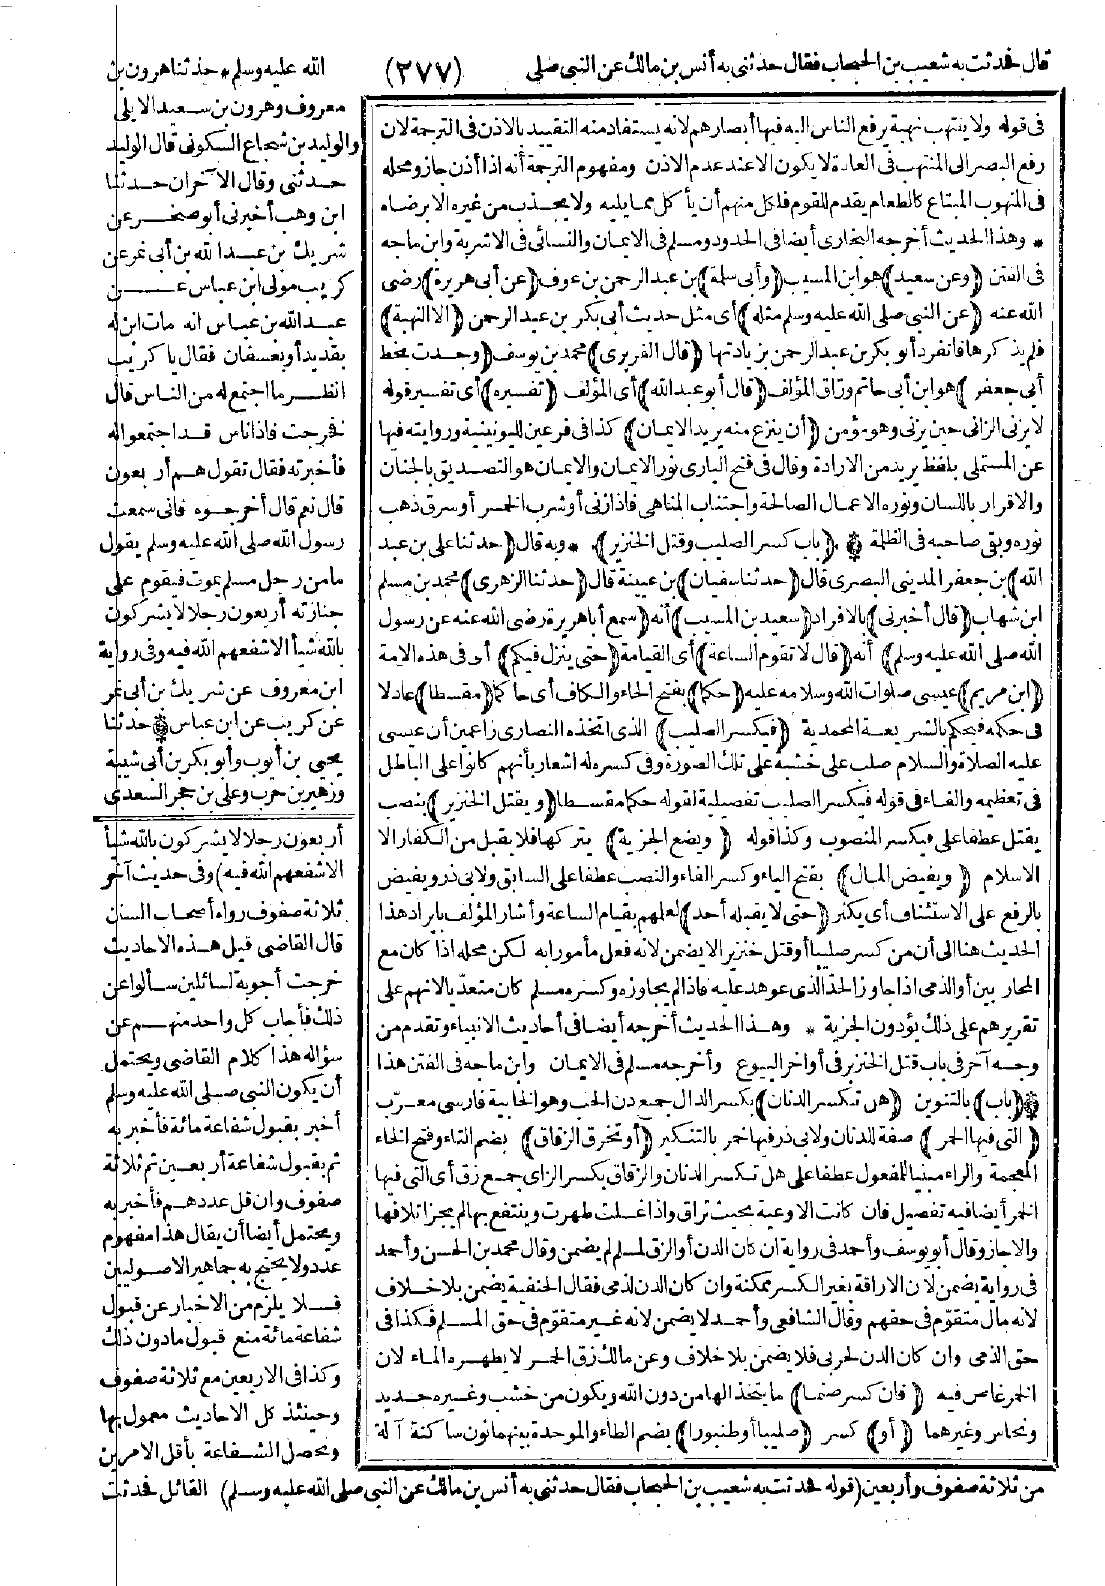 قال فحدثت به شعيب بن الحبحاب فقال حدثني به أنس بن مالك عن النبي صلى
(٢٧٧)
الله عليه وسلم * حدثنا هرون بن
معروف وهرون بن سعيد الايلي
والوليد بن شجاع السكوني قال الوليد
حدثني وقال الآخران حدثنا
ابن وهب أخبرني أبو صخر عن
شريك بن عبد الله بن أبي نمر عن
كريب مولى ابن عباس عن
عبد الله بن عباس انه مات ابن له
بقديد أو بعسفان فقال يا كريب
انظر ما اجتمع له من الناس قال
فخرجت فاذا ناس قد اجتمعوا له
فأخبرته فقال تقول هم أربعون
قال نعم قال أخرجوه فاني سمعت
رسول الله صلى الله عليه وسلم يقول
مامن رجل مسلم يموت فيقوم على
جنازته أربعون رجلا لا يشركون
بالله شيأ الا شفعهم الله فيه وفي رواية
ابن معروف عن شريك بن أبي نمر
عن كريب عن ابن عباس * حدثنا
يحيى بن أيوب وأبو بكر بن أبي شيبة
وزهير بن حرب وعلي بن حجر السعدي
أربعون رجلا لا يشركون بالله شيأ
الا شفعهم الله فيه) وفي حديث آخر
ثلاثة صفوف رواه أصحاب السنن
قال القاضي قيل هذه الاحاديث
خرجت أجوبة لسائلين سألوا عن
ذلك فأجاب كل واحد منهم عن
سؤاله هذا كلام القاضي ويحتمل
أن يكون النبي صلى الله عليه وسلم
أخبر بقبول شفاعة مائة فأخبر به
ثم بقبول شفاعة أربعين ثم ثلاثة
صفوف وان قل عددهم فأخبر به
ويحتمل أيضا أن يقال هذا مفهوم
عدد ولا يحتج به جماهير الاصوليين
فلا يلزم من الاخبار عن قبول
شفاعة مائة منع قبول مادون ذلك
وكذا في الاربعين مع ثلاثة صفوف
وحينئذ كل الاحاديث معمول بها
ويحصل الشفاعة بأقل الامرين
في قوله ولا ينتهب نهبة يرفع الناس اليه فيها أبصارهم لانه يستفاد منه التقييد بالاذن في الترجمة لان
رفع البصر الى المنتهب في العادة لا يكون الا عند عدم الاذن ومفهوم الترجمة أنه اذا أذن جاز ومحله
في المنهوب المشاع كالطعام يقدم للقوم فلكل منهم أن يأكل مما يليه ولا يجذب من غيره الا برضاه
* وهذا الحديث أخرجه البخاري أيضا في الحدود ومسلم في الايمان والنسائي في الاشربة وابن ماجه
في الفتن (وعن سعيد) هو ابن المسيب (وأبي سلمة) بن عبد الرحمن بن عوف (عن أبي هريرة) رضى
الله عنه (عن النبي صلى الله عليه وسلم مثله) أي مثل حديث أبي بكر بن عبد الرحمن (الا النهبة)
فلم يذكرها فانفرد أبو بكر بن عبد الرحمن بزيادتها (قال الفربري) محمد بن يوسف (وجدت بخط
أبي جعفر) هو ابن أبي حاتم وراق المؤلف (قال أبو عبد الله) أي المؤلف (تفسيره) أي تفسير قوله
لا يزني الزاني حين يزني وهو مؤمن (أن ينزع منه يريد الايمان) كذا في فرعين لليونينية وروايته فيها
عن المستملي بلفظ يريد من الارادة وقال في فتح الباري نور الايمان والايمان هو التصديق بالجنان
والاقرار باللسان ونوره الاعمال الصالحة واجتناب المناهي فاذا زنى أو شرب الخمر أو سرق ذهب
نوره وبقي صاحبه في الظلمة * (باب كسر الصليب وقتل الخنزير). * وبه قال (حدثنا علي بن عبد
الله) بن جعفر المديني البصري قال (حدثنا سفيان) بن عيينة قال (حدثنا الزهري) محمد بن مسلم
ابن شهاب (قال أخبرني) بالافراد (سعيد بن المسيب) أنه (سمع أبا هريرة رضى الله عنه عن رسول
الله صلى الله عليه وسلم) أنه (قال لا تقوم الساعة) أي القيامة (حتى ينزل فيكم) أي في هذه الامة
(ابن مريم) عيسى صلوات الله وسلامه عليه (حكما) بفتح الحاء والكاف أي حاكما (مقسطا) عادلا
في حكمه فيحكم بالشريعة المحمدية (فيكسر الصليب) الذي اتخذه النصارى زاعمين أن عيسى
عليه الصلاة والسلام صلب على خشبة على تلك الصورة وفي كسره له اشعار بأنهم كانوا على الباطل
في تعظيمه والفاء في قوله فيكسر الصليب تفصيلية لقوله حكما مقسطا (ويقتل الخنزير) بنصب
يقتل عطفا على فيكسر المنصوب وكذا قوله (ويضع الجزية) يتركها فلا يقبل من الكفار الا
الاسلام (ويفيض المال) بفتح الياء وكسر الفاء والنصب عطفا على السابق ولابي ذر ويفيض
بالرفع على الاستئناف أي يكثر (حتى لا يقبله أحد) لعلمهم بقيام الساعة وأشار المؤلف بايراد هذا
الحديث هنا الى أن من كسر صليبا أو قتل خنزيرا لا يضمن لانه فعل مأمورا به لكن محله اذا كان مع
المحاربين أو الذمى اذا جاوز الحد الذى عوهد عليه فاذا لم يجاوزه وكسره مسلم كان متعديا لانهم على
تقريرهم على ذلك يؤدون الجزية * وهذا الحديث أخرجه أيضا في أحاديث الانبياء وتقدم من
وجه آخر في باب قتل الخنزير في أواخر البيوع وأخرجه مسلم في الايمان وابن ماجه في الفتن هذا
* (باب) بالتنوين (هل تكسر الدنان) بكسر الدال جمع دن الحب وهو الخابية فارسى معرّب
(التي فيها الخمر) صفة للدنان ولابى ذر فيها خمر بالتنكير (أو تخرق الزقاق) بضم التاء وفتح الخاء
المعجمة والراء مبنيا للمفعول عطفا على هل تكسر الدنان والزقاق بكسر الزاي جمع زق أي التي فيها
الخمر أيضا فيه تفصيل فان كانت الاوعية بحيث تراق واذا غسلت طهرت وينتفع بها لم يجز اتلافها
والا جاز وقال أبو يوسف وأحمد في رواية ان كان الدن أو الزق لمسلم لم يضمن وقال محمد بن الحسن وأحمد
في رواية يضمن لان الاراقة بغير الكسر ممكنة وان كان الدن لذمى فقال الحنفية يضمن بلا خلاف
لانه مال متقوّم في حقهم وقال الشافعي وأحمد لا يضمن لانه غير متقوّم في حق المسلم فكذا في
حق الذمى وان كان الدن لحربى فلا يضمن بلا خلاف وعن مالك زق الخمر لا يطهره الماء لان
الخمر غاص فيه (فان كسر صنما) ما يتخذ الها من دون الله ويكون من خشب وغيره حديد
ونحاس وغيرهما (أو) كسر (صليبا أو طنبورا) بضم الطاء والموحدة بينهما نون ساكنة آلة
من ثلاثة صفوف وأربعين (قوله فحدثت به شعيب بن الحبحاب فقال حدثني به أنس بن مالك عن النبي صلى الله عليه وسلم) القائل فحدثت